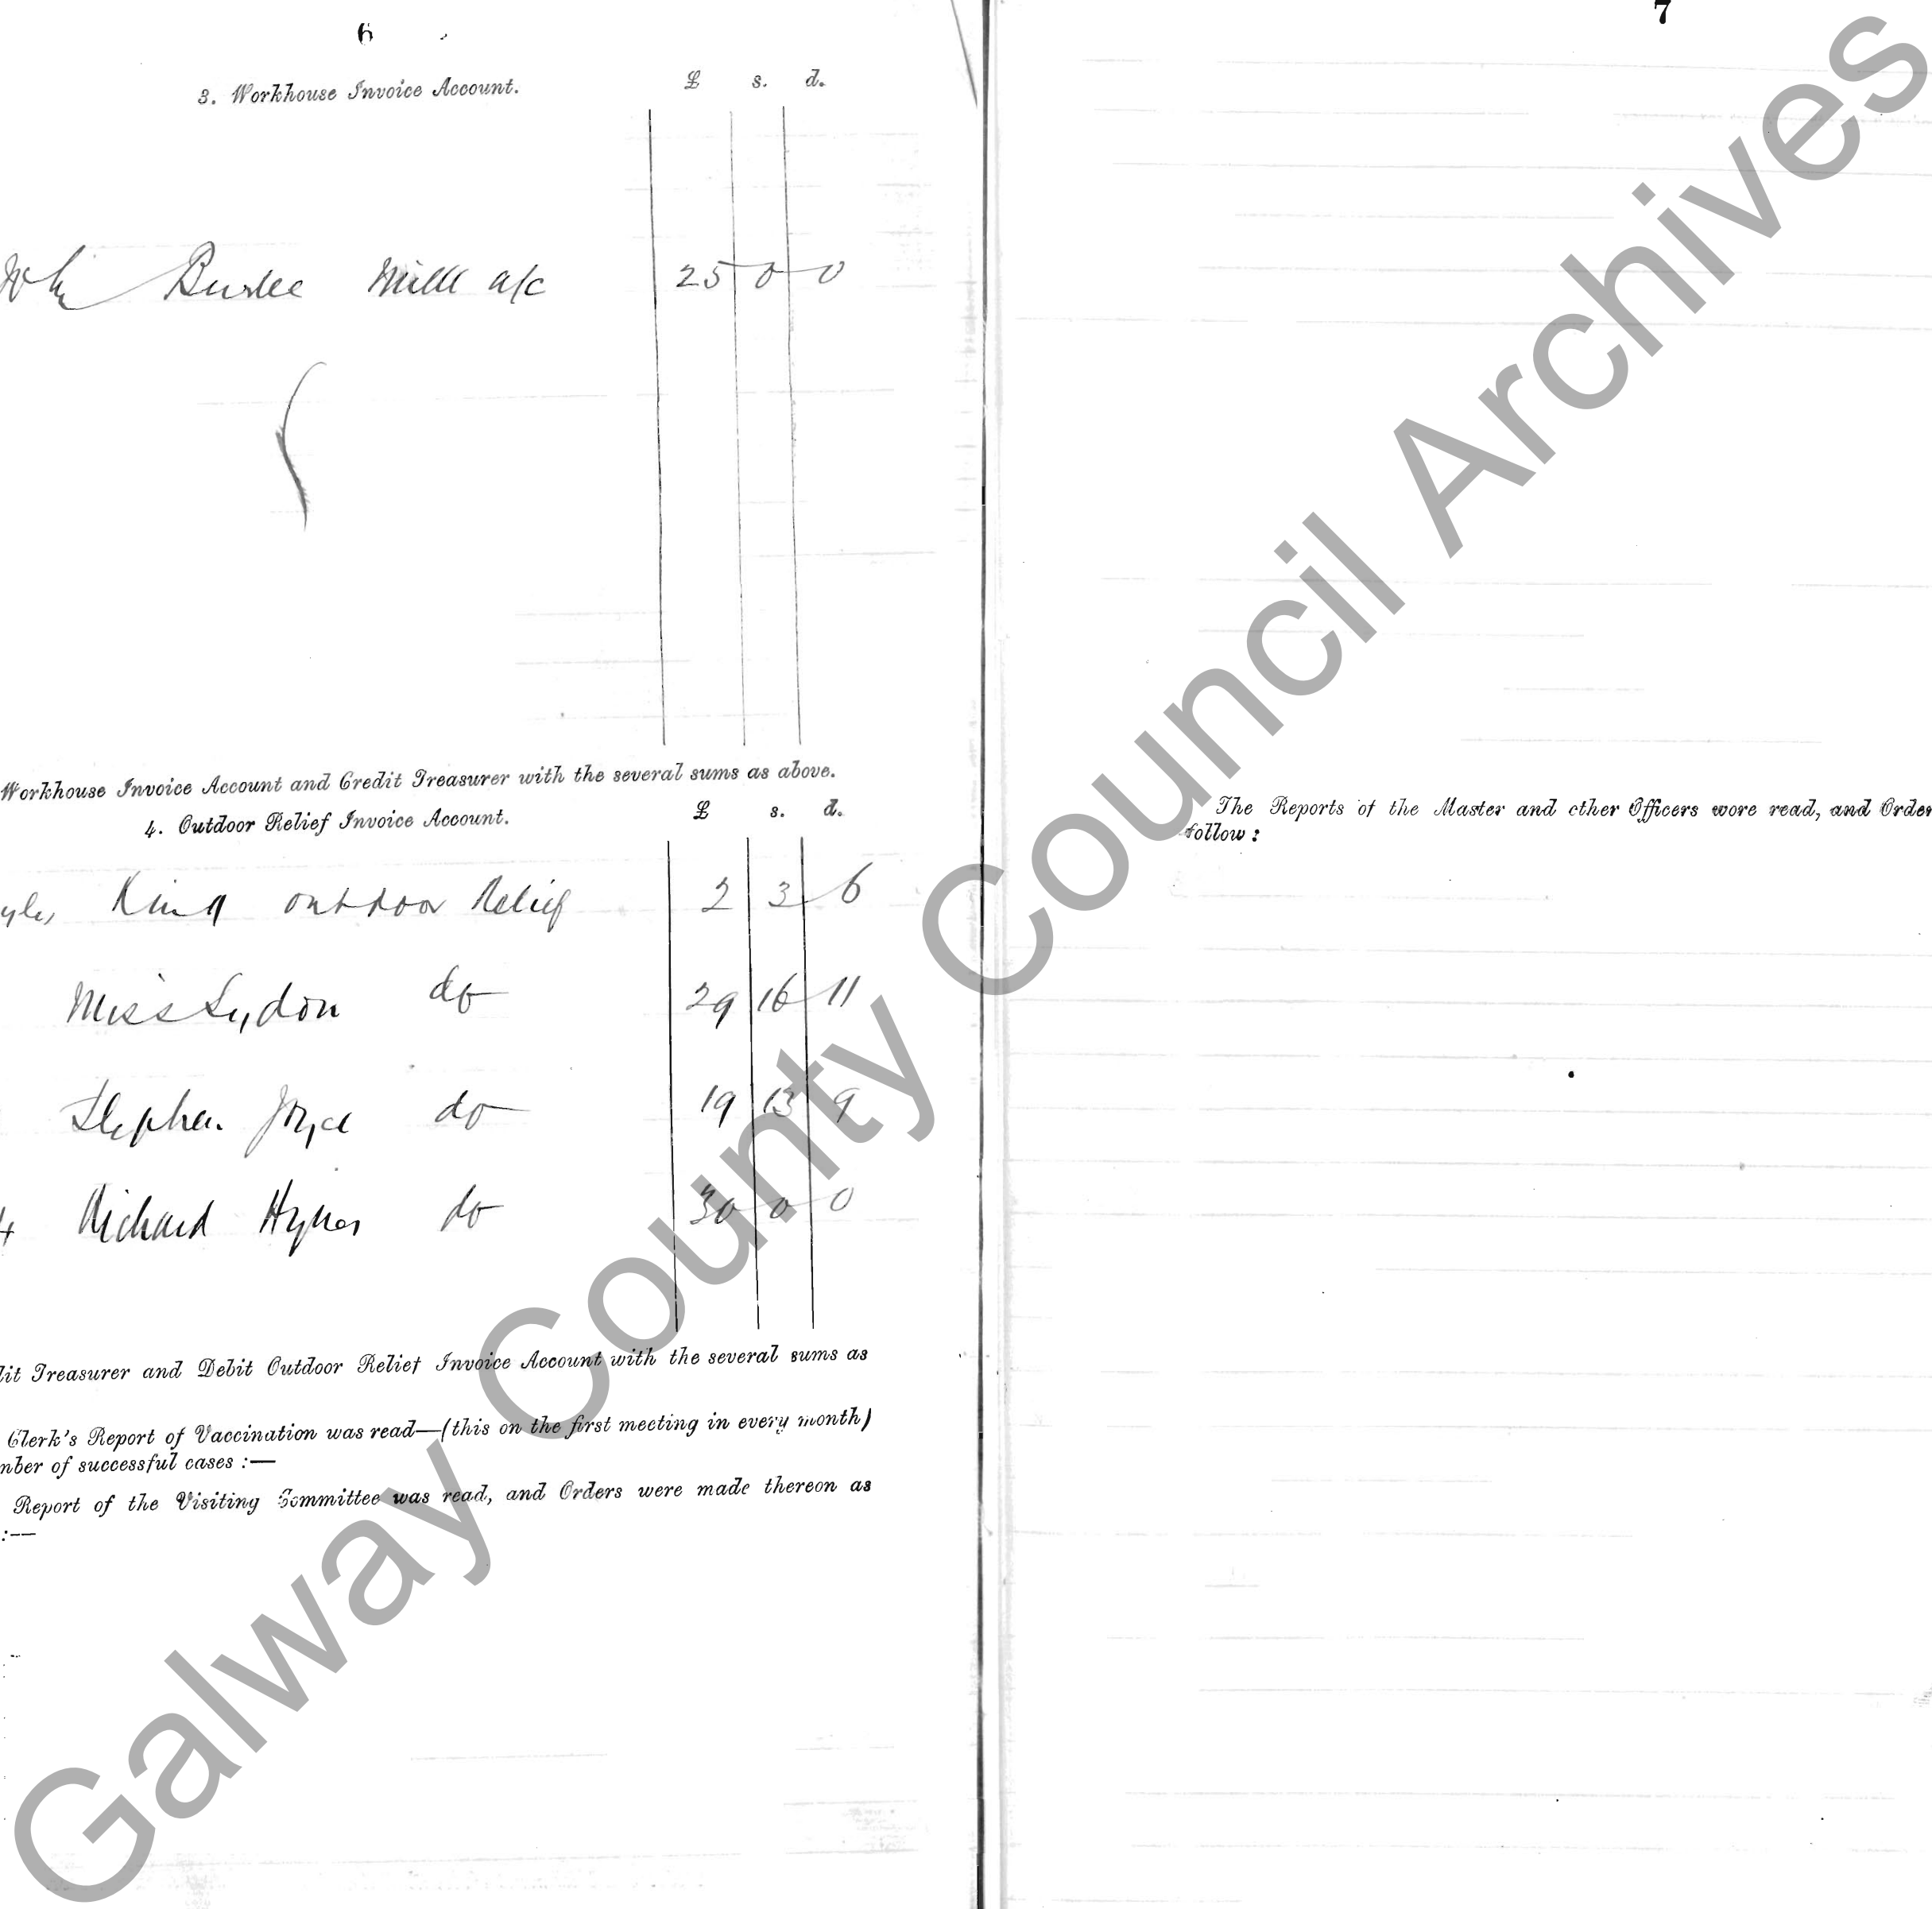 6
3. Workhouse Invoice Account.
£ s. d.
John Burke Milk a/c 25 0 0
Workhouse Invoice Account and Credit Treasurer with the several sums as above.
4. Outdoor Relief Invoice Account.
£ s. d.
yles King outdoor Relief 2 3 6
Miss Lydon do 29 16 11
Stephen Joyce do 19 13 9
4 Richard Hynes do 30 0 0
dit Treasurer and Debit Outdoor Relief Invoice Account with the several sums as
Clerk's Report of Vaccination was read—(this on the first meeting in every month)
mber of successful cases :—
Report of the Visiting Committee was read, and Orders were made thereon as
:—
7
The Reports of the Master and other Officers were read, and Order
follow :
Galway County Council Archives